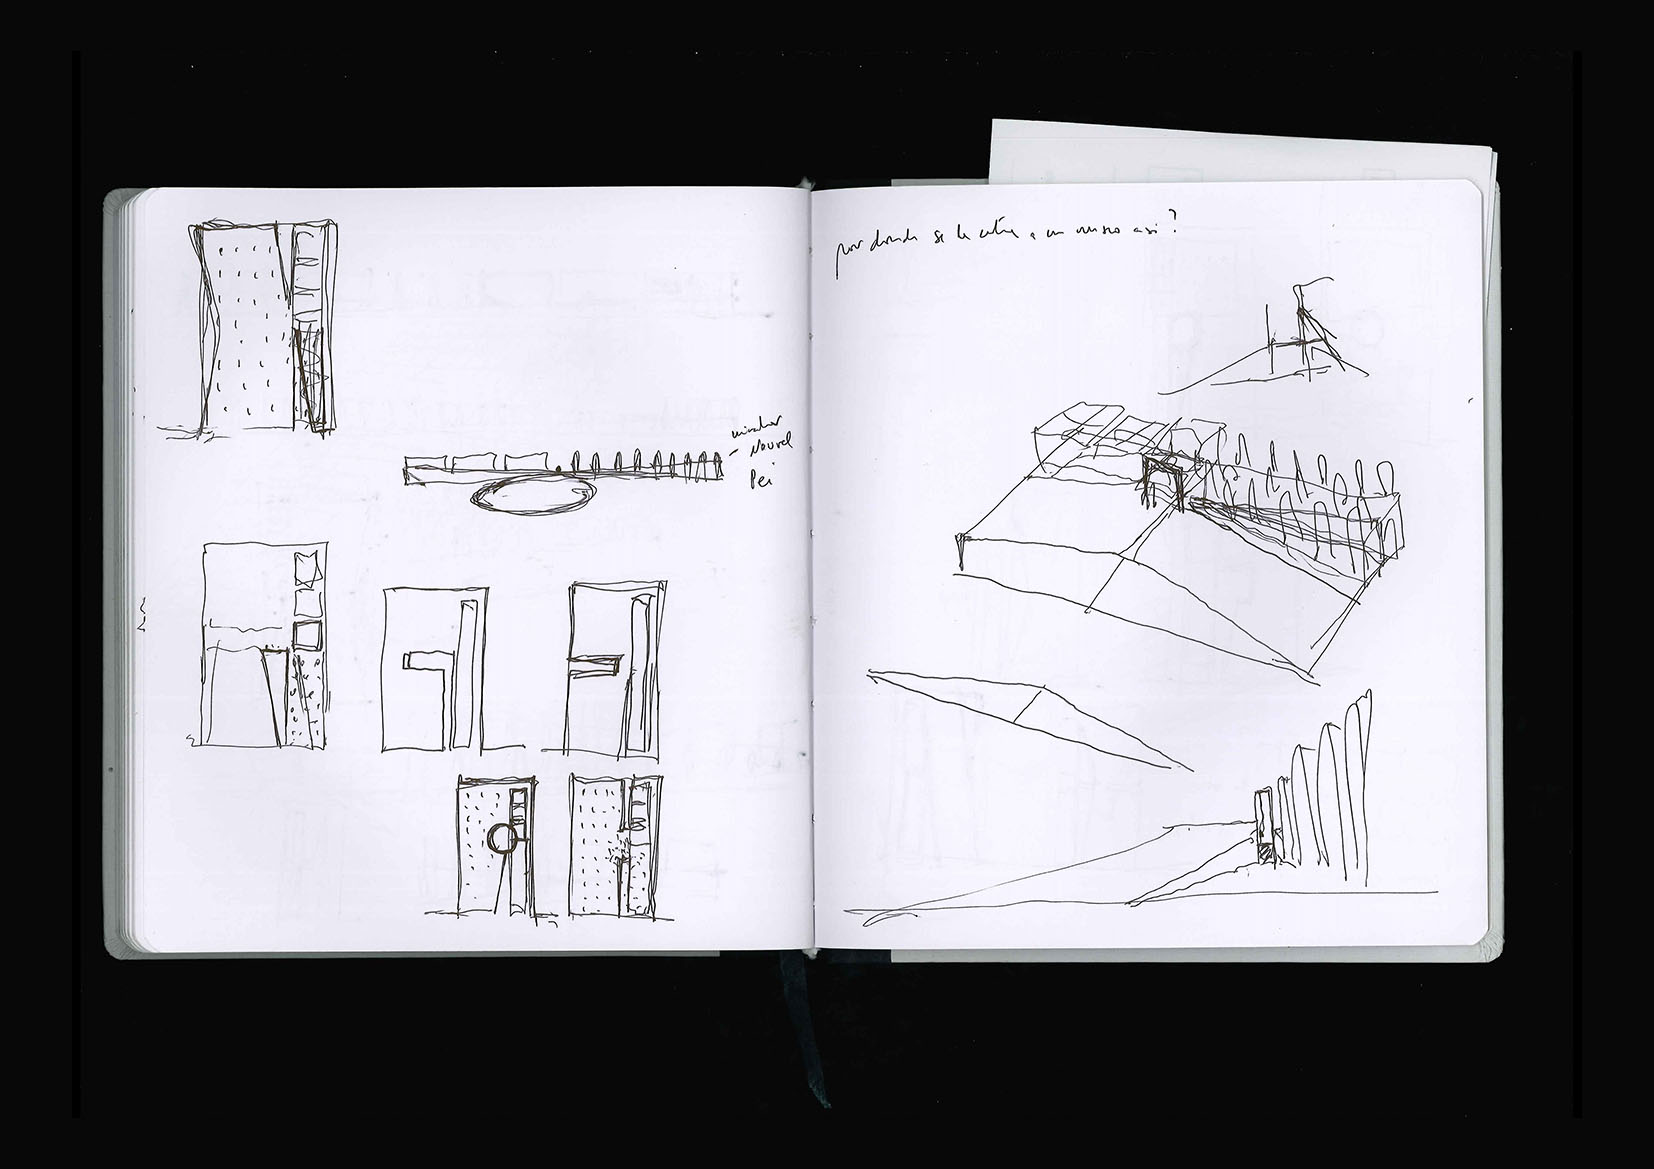 mirador
Nouvel
Pei
por donde se le entra a un museo asi?